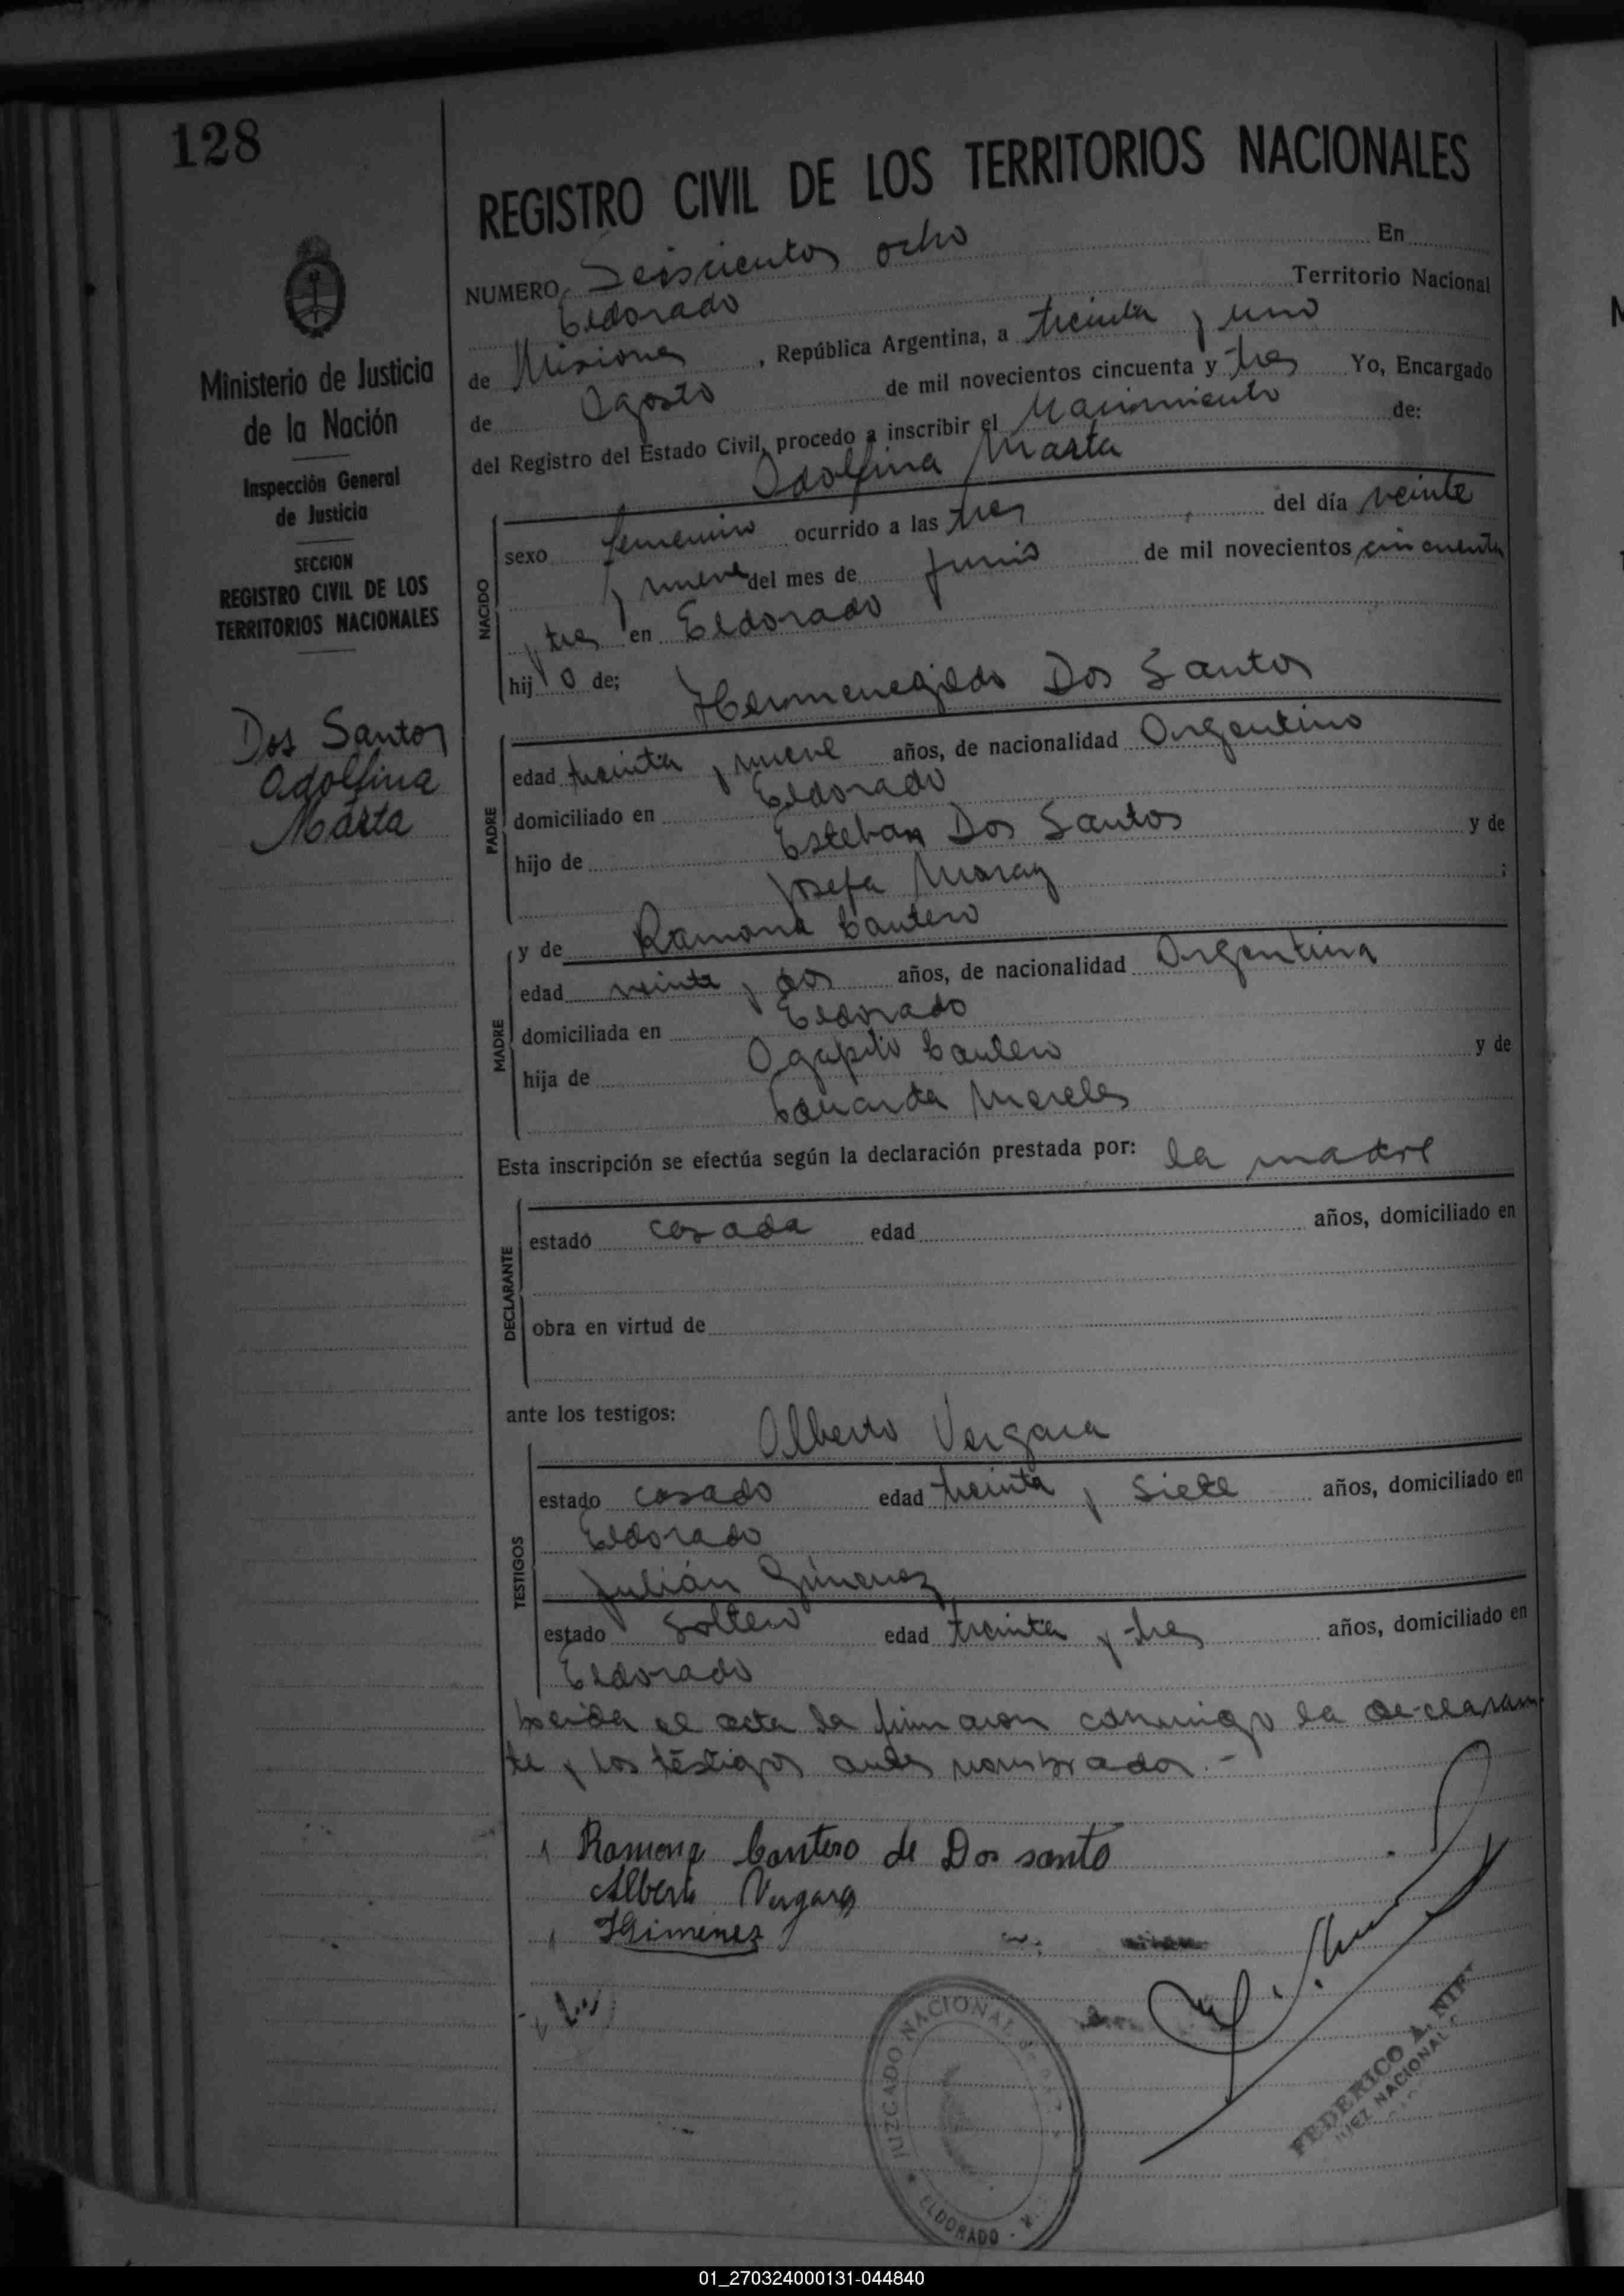 128
REGISTRO CIVIL DE LOS TERRITORIOS NACIONALES
NUMERO Seiscientos ocho En
Eldorado Territorio Nacional
de Misiones, República Argentina, a treinta y uno
de Agosto de mil novecientos cincuenta y tres Yo, Encargado
del Registro del Estado Civil, procedo a inscribir el Nacimiento de:
Adolfina Marta
Ministerio de Justicia
de la Nación
Inspección General
de Justicia
SECCION
REGISTRO CIVIL DE LOS
TERRITORIOS NACIONALES
Dos Santos
Adolfina
Marta
NACIDO
sexo femenino ocurrido a las tres del día veinte
y nueve del mes de Junio de mil novecientos cincuenta
y tres en Eldorado
hijo de; Hermenegildo Dos Santos
PADRE
edad treinta y nueve años, de nacionalidad Argentino
domiciliado en Eldorado
hijo de Esteban Dos Santos y de
Josefa ;
y de Ramona Cantero
MADRE
edad veinte y dos años, de nacionalidad Argentina
domiciliada en Eldorado
hija de Agapito Cantero y de
Mereles
Esta inscripción se efectúa según la declaración prestada por: la madre
DECLARANTE
estado casada edad años, domiciliado en
obra en virtud de
ante los testigos: Alberto Vergara
TESTIGOS
estado casado edad treinta y siete años, domiciliado en
Eldorado
Julián Gimenez
estado soltero edad treinta y tres años, domiciliado en
Eldorado
Leida el acta la firmaron conmigo la declaran
te y los testigos antes nombrados.-
Ramona Cantero de Dos santo
Alberto Vergara
JGimenez
JUZGADO NACIONAL
ELDORADO
FEDERICO A.
JUEZ NACIONAL
01_270324000131-044840